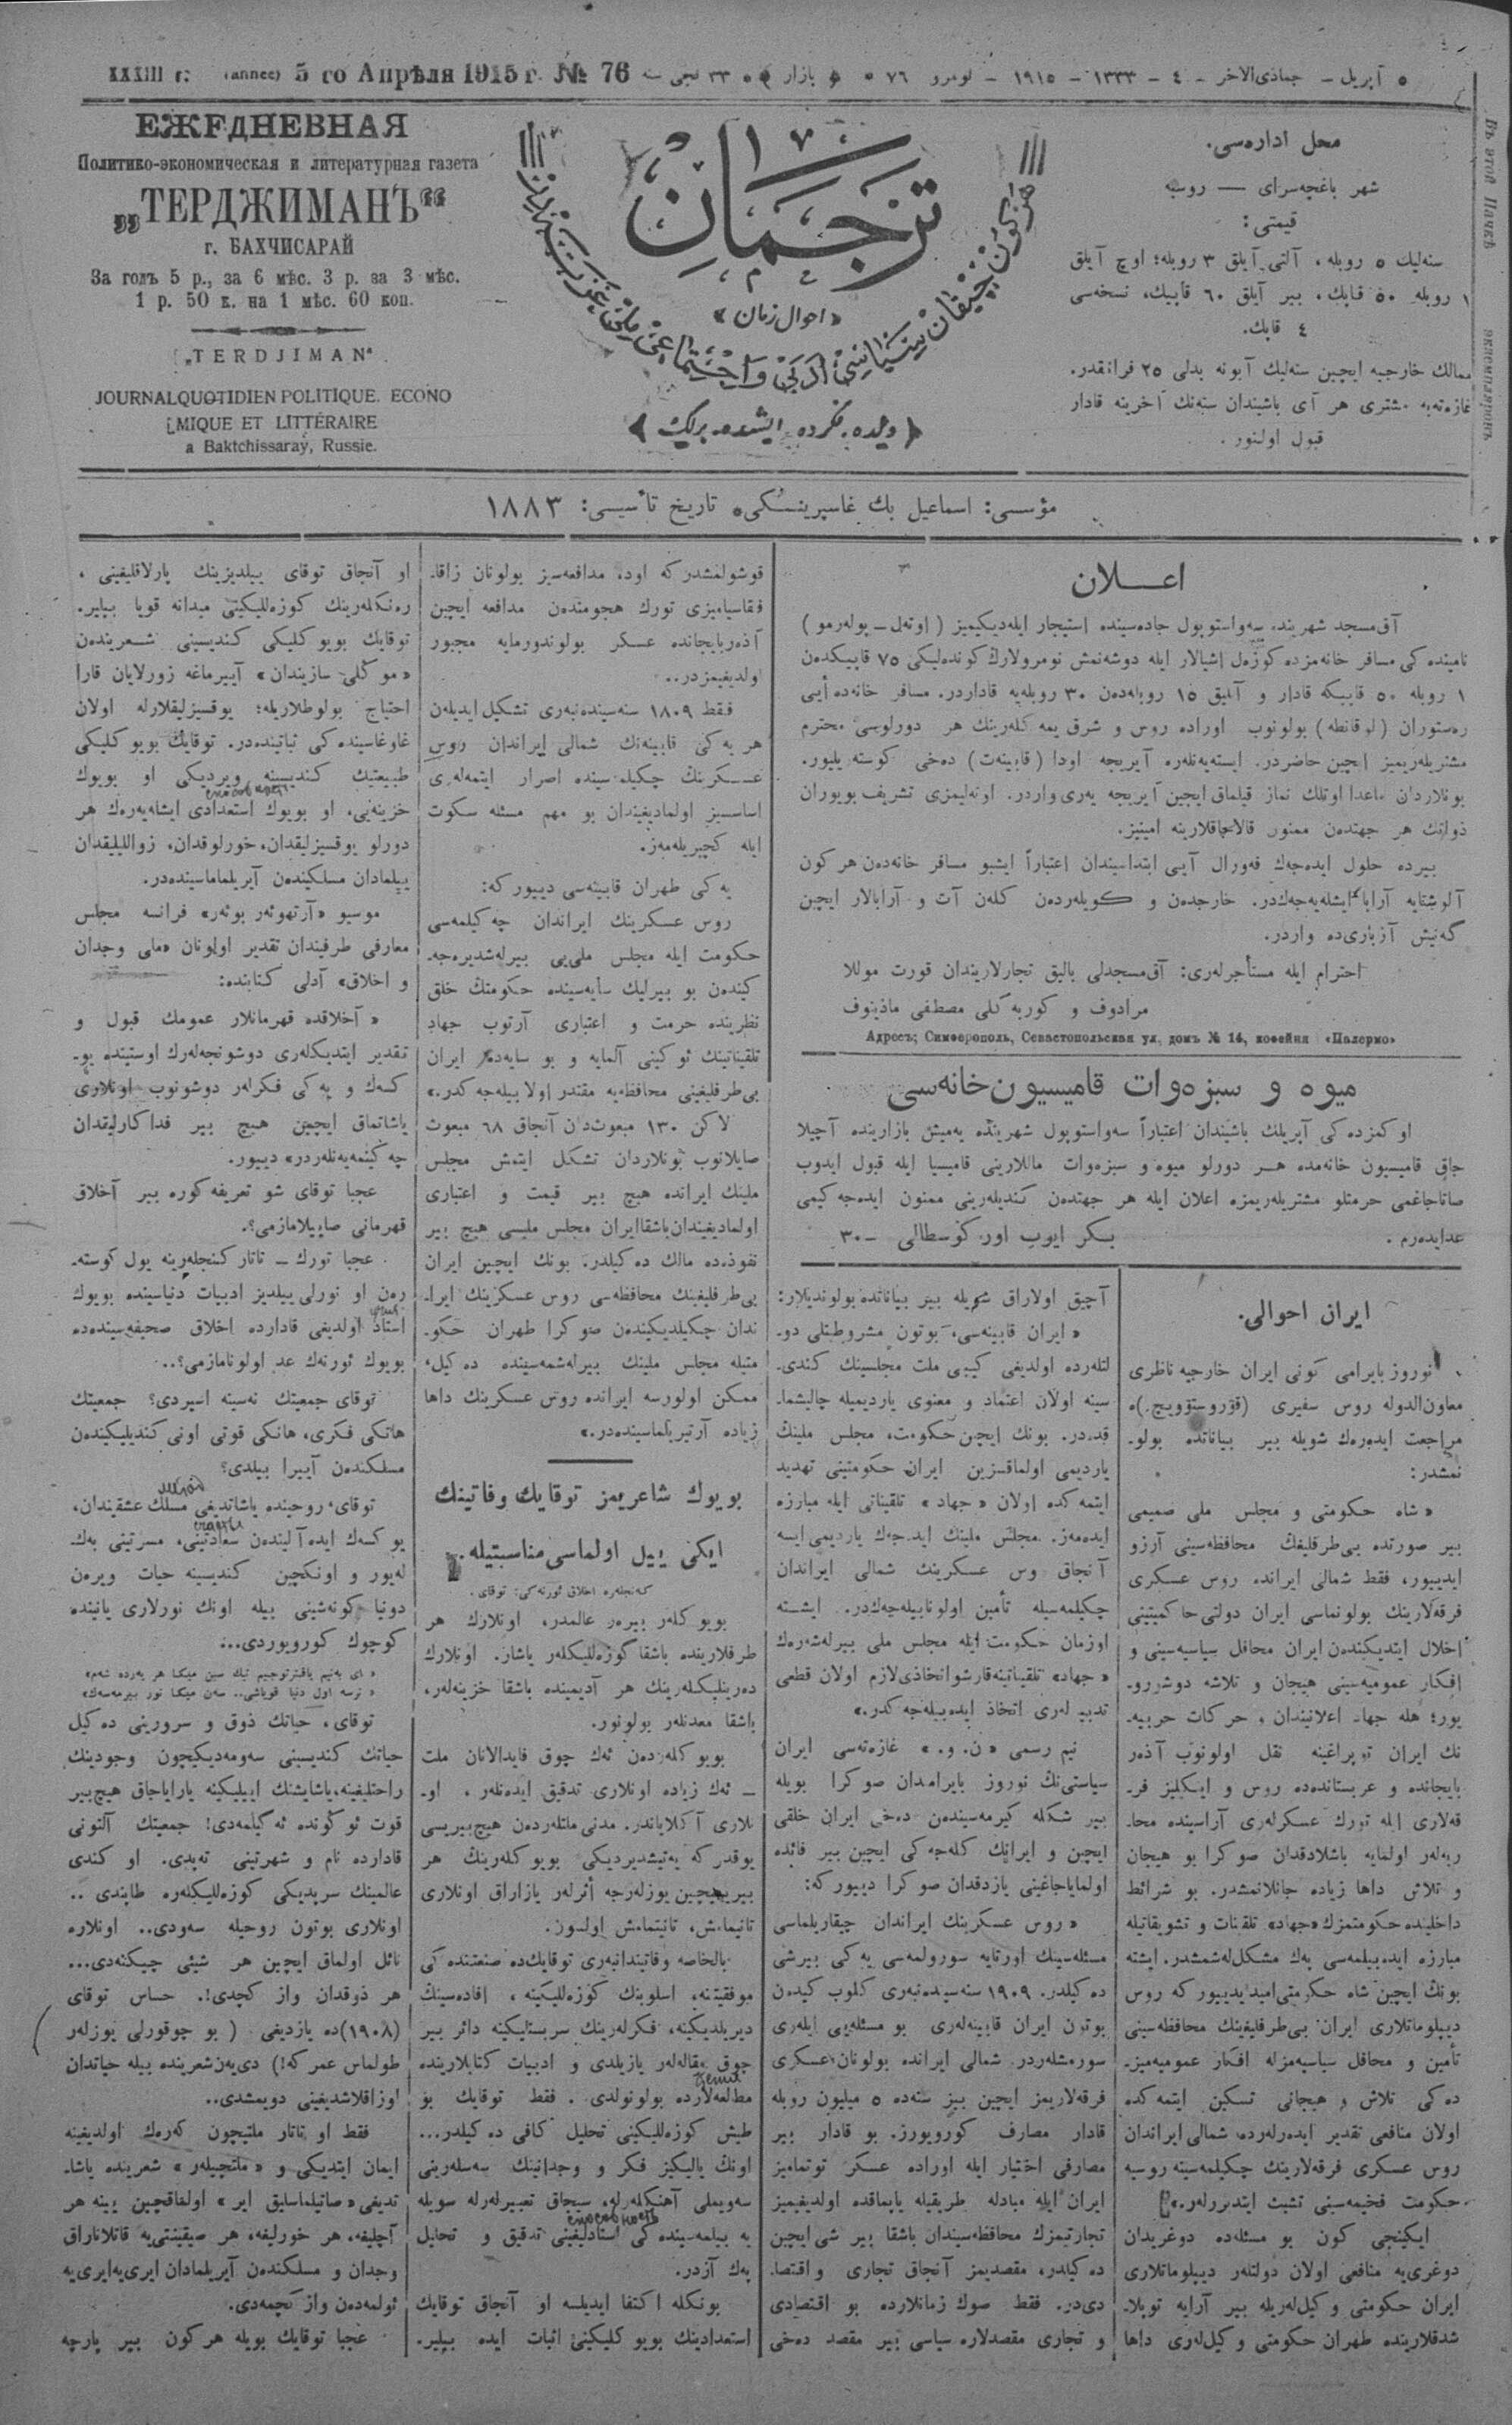 XXXIII г. (annee) 5 го Апрѣля 1915 г. № 76
٥ آپریل – جماذی‌الاخر – ٤ – ١٣٣٣ – ١٩١٥ – نومرو ٧٦ • بازار • ٣٣ نجی سنه
ЕЖЕДНЕВНАЯ
Политико-экономическая и литературная газета
„ТЕРДЖИМАНЪ“
г. БАХЧИСАРАЙ
За годъ 5 р., за 6 мѣс. 3 р. за 3 мѣс.
1 р. 50 к. на 1 мѣс. 60 коп.
„TERDJIMAN“
JOURNAL QUOTIDIEN POLITIQUE. ECONO
MIQUE ET LITTÉRAIRE
a Baktchissaray, Russie.
ترجمان
«احوال زمان»
هر كون چیقان سیاسی، ادبی و اجتماعی ملی غزته‌در
﴿ دیلده، فكرده، ایشده، برلك ﴾
محل اداره‌سی.
شهر باغچه‌سرای — روسیه
قیمتی:
سنه‌لیك ٥ روبله، آلتی آیلق ٣ روبله؛ اوچ آیلق
١ روبله ٥٠ قاپك، بیر آیلق ٦٠ قاپیك، نسخه‌سی
٤ قاپك.
ممالك خارجیه ایچین سنه‌لیك آبونه بدلی ٢٥ فرانقدر.
غازه‌ته‌یه مشتری هر آی باشیندان سنه‌نك آخرینه قادار
قبول اولنور.
Въ этой пачкѣ экземпляровъ
مؤسسی: اسماعیل بك غاسپرینسكی • تاریخ تأسیسی: ١٨٨٣
اعــلان
آق‌مسجد شهرینده سه‌واستوپول جاده‌سینده استیجار ایله‌دیكیمیز (اوته‌ل – پوله‌رمو)
نامینده‌كی مسافر خانه‌مزده كوزه‌ل اشیالار ایله دوشه‌نمش نومرولارڭ كونده‌لیكی ٧٥ قاپیكدن
١ روبله ٥٠ قاپیكه قادار و آیلیق ١٥ روبله‌دن ٣٠ روبله‌یه قاداردر. مسافر خانه‌ده أیی
ره‌ستوران (لوقانطه) بولونوب اوراده روس و شرق یمه‌كله‌رینك هر دورلوسی محترم
مشتریله‌ریمیز ایچین حاضردر. ایسته‌یه‌نله‌ره آیریجه اودا (قابینه‌ت) ده‌خی كوسته‌ریلیور.
بونلاردان ماعدا اوتلك نماز قیلماق ایچین آیریجه یه‌ری واردر. اوته‌لیمزی تشریف بویوران
ذواتك هر جهتدن ممنون قالاجاقلارینه امینیز.
بیرده حلول ایده‌جه‌ك فه‌ورال آیی ابتداسیندان اعتباراً ایشبو مسافر خانه‌دن هر كون
آلوشتایه آرابا ایشله‌یه‌جه‌كدر. خارجدن و كویله‌ردن كله‌ن آت و آرابالار ایچین
گه‌نیش آزباری‌ده واردر.
احترام ایله مستأجرله‌ری: آق‌مسجدلی بالیق تجارلاریندان قورت موللا
مرادوف و كوربه‌كلی مصطفی ماذینوف
Адресъ; Симферополь, Севастопольская ул, домъ № 14, кофейня «Палермо»
میوه و سبزه‌وات قامیسیون‌خانه‌سی
اوكمزده‌كی آپریلك باشیندان اعتباراً سه‌واستوپول شهرینده یه‌میش بازارینده آچیلا
جاق قامیسیون خانه‌مده هــر دورلو میوه و سبزه‌وات ماللارینی قامیسیا ایله قبول ایدوب
صاتاجاغمی حرمتلو مشتریله‌ریمزه اعلان ایله هر جهتدن كندیله‌رینی ممنون ایده‌جه‌كیمی
عدایده‌رم.
بــكر ایوب اور كوسطالی –٣٠
ایران احوالی.
نوروز بایرامی كونی ایران خارجیه ناظری
معاون‌الدوله روس سفیری (قوروستوویچ)ه
مراجعت ایده‌رەك شویله بیر بیاناتده بولو-
نمشدر:
«شاه حكومتی و مجلس ملی صمیمی
بیر صورتده بی‌طرفلیڭك محافظه‌سینی آرزو
ایدییور، فقط شمالی ایرانده روس عسكری
فرقه‌لارینك بولونماسی ایران دولتی حاكمیتینی
اخلال ایتدیكندن ایران محافل سیاسیه‌سینی و
افكار عمومیه‌سینی هیجان و تلاشه دوشررو-
یور؛ هله جهاد اعلانیندان و حركات حربیه-
نك ایران توپراغینه نقل اولونوب آذر
بایجانده و عربستانده‌ده روس و اینكلیز فر-
قه‌لاری ایله تورك عسكرله‌ری آراسینده محا-
ربه‌لر اولمایه باشلادقدان صوكرا بو هیجان
و تلاش داها زیاده جانلانمشدر. بو شرائط
داخلینده حكومتمزك «جهاد» تلقینات و تشویقاتیله
مبارزه ایده‌بیلمه‌سی په‌ك مشكل‌له‌شمشدر. ایشته
بونڭ ایچین شاه حكومتی امیدایدییور كه روس
دیپلوماتلاری ایران بی‌طرفلیغینك محافظه‌سینی
تأمین و محافل سیاسیه‌مزله افكار عمومیه‌میز-
ده‌كی تلاش و هیجانی تسكین ایتمه‌كده
اولان منافعی تقدیر ایده‌رله‌رده شمالی ایراندان
روس عسكری فرقه‌لارینك چكیلمه‌سینه روسیه
حكومت فخیمه‌سینی تشبث ایتدیررله‌ر.»
ایكینجی كون بو مسئله‌ده دوغریدان
دوغری‌یه منافعی اولان دولتله‌ر دیپلوماتلاری
ایران حكومتی وكیل‌له‌ریله بیر آرایه توپلا-
شدقلارینده طهران حكومتی وكیل‌له‌ری داها
آچیق اولاراق شویله بیر بیاناتده بولوندیلار:
«ایران قابینه‌سی، بوتون مشروطیتلی دو-
لتله‌رده اولدیغی كیبی ملت مجلسینك كندی-
سینه اولان اعتماد و معنوی یاردیمیله چالیشما-
قده‌در. بونك ایچین حكومت، مجلس ملینڭ
یاردیمی اولماقسزین ایران حكومتینی تهدید
ایتمه‌كده اولان «جهاد» تلقیناتی ایله مبارزه
ایده‌مه‌ز. مجلس ملینك ایده‌جه‌ك یاردیمی ایسه
آنجاق روس عسكرینك شمالی ایراندان
چكیلمه‌سیله تأمین اولونابیله‌جه‌كدر. ایشــته
اوزمان حكومت ایله مجلس ملی بیرله‌شه‌رەك
«جهاد» تلقیناتینه‌قارشو اتخاذی لازم اولان قطعی
تدبیرله‌ری اتخاذ ایده‌بیله‌جه‌كدر.»
نیم رسمی «ن. و.» غازه‌ته‌سی ایران
سیاستی‌نڭ نوروز بایرامدان صوكرا بویله
بیر شكله كیرمه‌سیندن ده‌خی ایران خلقی
ایچین و ایرانك كله‌جه‌كی ایچین بیر فائده
اولمایاجاغینی یازدقدان صوكرا دییور كه:
«روس عسكرینك ایراندان چیقاریلماسی
مسئله‌سینك اورتایه سورولمه‌سی یه‌كی بیرشی
ده‌كیلدر. ١٩٠٩ سنه‌سیدەنبه‌ری كلوب كیدن
بوتون ایران قابینه‌له‌ری بو مسئله‌یی ایله‌ری
سورمشله‌ردر. شمالی ایرانده بولونان عسكری
فرقه‌لاریمز ایچین بیز سنه‌ده ٥ میلیون روبله
قادار مصارف كورویورز. بو قادار بیر
مصارفی اختیار ایله اوراده عسكر توتمامیز
ایران ایله مبادله طریقیله یاپماقده اولدیغیمیز
تجارتیمزك محافظه‌سیندان باشقا بیر شی ایچین
ده‌كیلدر، مقصدیمز آنجاق تجاری و اقتصا-
دی‌در. فقط صوك زمانلارده بو اقتصادی
و تجاری مقصدلاره سیاسی بیر مقصد ده‌خی
قوشولمشدر كه اوده مدافعه‌سیز بولونان زاقا-
فقاسیامیزی تورك هجومندن مدافعه ایچین
آذه‌ربایجانده عسكر بولوندورمایه مجبور
اولدیغیمزدر..
فقط ١٨٠٩ سنه‌سیندەنبه‌ری تشكیل ایدیلەن
هر یه‌كی قابینه‌نك شمالی ایراندان روس
عســكرینڭ چكیلمه‌سینده اصرار ایتمه‌له‌ری
اساسسیز اولمادیغیندان بو مهم مسئله سكوت
ایله كچیریله‌مه‌ز.
یه‌كی طهران قابینه‌سی دییور كه:
روس عسكرینك ایراندان چه‌كیلمه‌سی
حكومت ایله مجلس ملی‌یی بیرله‌شدیره‌جه-
كیندن بو بیرلیك سایه‌سینده حكومتڭ خلق
نظرینده حرمت و اعتباری آرتوب جهاد
تلقیناتینك ئوكینی آلمایه و بو سایه‌ده ایران
بی‌طرفلیغینی محافظه‌یه مقتدر اولابیله‌جه‌كدر.»
لاكن ١٣٠ مبعوثدان آنجاق ٦٨ مبعوث
صایلانوب بونلاردان تشكل ایتمش مجلس
ملینك ایرانده هیچ بیر قیمت و اعتباری
اولمادیغیندان‌باشقا ایران مجلس ملیسی هیچ بیر
نفوذه‌ده مالك ده‌كیلدر. بونك ایچین ایران
بی‌طرفلیغینك محافظه‌سی روس عسكرینك ایرا-
ندان چكیلدیكیندن صوكرا طهران حكو-
متیله مجلس ملینك بیرله‌شمه‌سینده ده‌كیل،
ممكن اولورسه ایرانده روس عسكرینك داها
زیاده آرتیریلماسینده‌در.»
بویوك شاعریمز توقایك وفاتینك
ایكی ییل اولماسی مناسبتیله.
كه‌نجله‌ره اخلاق ئورنه‌كی: توقای.
بویوكله‌ر بیره‌ر عالمدر، اونلارك هر
طرفلارینده باشقا گوزه‌للیكله‌ر یاشار. اونلارك
ده‌رینلیكله‌رینك هر آدیمینده باشقا خزینه‌لەر،
باشقا معدنله‌ر بولونور.
بویوكله‌ردن ئه‌ك چوق فایدالانان ملت
– ئه‌ك زیاده اونلاری تدقیق ایده‌نله‌ر، او-
نلاری آكلایاندر. مدنی ملتله‌ردن هیچ‌بیریسی
یوقدر كه یه‌تیشدیردیكی بویوكله‌رینڭ هر
بیری‌ایچین یوزله‌رجه أثرله‌ر یازاراق اونلاری
تانیمامش، تانیتمامش اولسون.
بالخاصه وفاتیندانبه‌ری توقایك‌ده صنعتنده‌كی
موفقیتنه، اسلوبنك كوزه‌للیكینه، افاده‌سینڭ
دیریلدیكینه، فكرله‌رینك سربستلیكینه دائر بیر
چوق مقاله‌له‌ر یازیلدی و ادبیات كتابلارینده
مطالعه‌لارده بولونولدی. فقط توقایك بو
طیش كوزه‌للیكینی تحلیل كافی ده‌كیلدر...
اونڭ یالیكیز فكر و وجدانینك سه‌سله‌رینی
سه‌ویملی آهنكله‌رله، سیجاق تعبیرله‌رله سویله
یه بیلمه‌سینده‌كی استادلیغینی تدقیق و تحلیل
په‌ك آزدر.
بونكله اكتفا ایدیلسه او آنجاق توقایك
استعدادینك بویوكلیكینی اثبات ایده بیلیر.
او آنجاق توقای ییلدیزینك پارلاقلیغینی،
ره‌نكله‌رینك كوزه‌للیكینی میدانه قویا بیلیر.
توقایك بویوكلیكی كندیسینی شــعریندن
«موكلی سازیندان» آییرماغه زورلایان قارا
احتیاج بولوطلاریله؛ یوقسیزلیقلارله اولان
غاوغاسیندەكی ثباتینده‌در. توقایك بویوكلیكی
طبیعتیك كندیسینه ویردیكی او بویوك
خزینه‌یی، او بویوك استعدادی ایشله‌یه‌رەك هر
دورلو یوقسیزلیقدان، خورلوقدان، زواللیلیقدان
ییلمادان مسلكیندن آیریلماماسینده‌در.
موسیو «آرتهوئه‌ر بوئه‌ر» فرانسه مجلس
معارفی طرفیندان تقدیر اولونان «ملی وجدان
و اخلاق» آدلی كتابنده:
«آخلاقده قهرمانلار عمومك قبول و
تقدیر ایتدیكله‌ری دوشونجه‌له‌رڭ اوستینده یو-
كسه‌ك و یه‌كی فكرله‌ر دوشونوب اونلاری
یاشاتماق ایچین هیچ بیر فداكارلیقدان
چه‌كینمه‌یه‌نله‌ردر» دییور.
عجبا توقای شو تعریفه‌كوره بیر آخلاق
قهرمانی صاییلامازمی؟.
عجبا تورك – تاتار كنجله‌رینه یول كوسته-
ره‌ن او نورلی ییلدیز ادبیات دنیاسینده بویوك
استاذ اولدیغی قادارده اخلاق صحیفه‌سینده‌ده
بویوك ئورنه‌ك عد اولونامازمی؟..
توقای جمعیتك نه‌سینه اسیردی؟ جمعیتك
هانكی فكری، هانكی قوتی اونی كندیلیكیندن
مسلكندن آییرا بیلدی؟
توقای، روحینده یاشاتدیغی مسلك عشقیندان،
یوكسه‌ك ایده‌آلیندن سعادتینی، مسرتینی به‌ك-
له‌یور و اونكچین كندیسینه حیات ویره‌ن
دونیا كونه‌شینی بیله اونك نورلاری یانینده
كوچوك كورویوردی...:
«ای به‌نیم یاقتیرتوجیم تیك سین میكا هر یه‌رده شه‌م»
«نرسه اول دنیا قویاشی.. سه‌ن میكا نور بیرمه‌سه‌ك»
توقای، حیاتك ذوق و سرورینی ده‌كیل
حیاتك كندیسینی سه‌ومه‌دیكیچون وجودینك
راحتلیغینه،یاشایشنك اییلیكینه یارایاجاق هیچ‌بیر
قوت ئوكونده ئه‌گیلمه‌دی! جمعیتك آلتونی
قادارده نام و شهرتینی ته‌پدی. او كندی
عالمینك سرپدیكی كوزه‌للیكله‌ره طاپندی..
اونلاری بوتون روحیله سه‌ودی.. اونلاره
نائل اولماق ایچین هر شیئی چیكنه‌دی...
هر ذوقدان واز كچدی!. حساس توقای
(١٩٠٨)ده یازدیغی (بو چوقورلی یوزله‌ر
طولماس عمر كه!) دی‌یه‌ن‌شعرینده بیله حیاتدان
اوزاقلاشدیغینی دویمشدی..
فقط او تاتار ملتیچون كه‌ره‌ك اولدیغینه
ایمان ایتدیكی و «ملتجیله‌ر» شعرینده یاشا-
تدیغی «صاتیلماسلیق ایر» اولماقچین یینه هر
آچلیغه، هر خورلیغه، هر صیقینتی‌یه قاتلاناراق
وجدان و مسلكندن آیریلمادان ایری‌یه‌ایری‌یه
ئولمه‌دەن واز كچمه‌دی.
عجبا توقایك بویله هر كون بیر پارچه